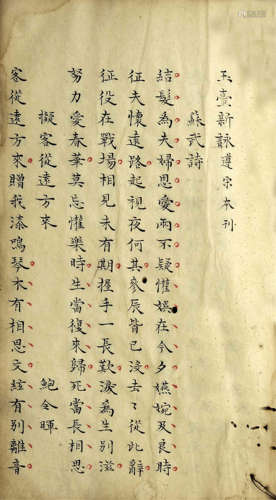 玉臺新詠遵宋本刋
蘇武詩
結髮為夫婦思愛兩不疑懽娛在今夕嬿婉及良時
征夫懷遠路起視夜何其參辰皆已沒去去從此辭
征役在戰場相見未有期握手一長歎淚為生別滋
努力愛春華莫忘懽樂時生當復來歸死當長相思
擬客從遠方來
鮑令暉
客從遠方來贈我漆鳴琴木有相思文絃有別離音